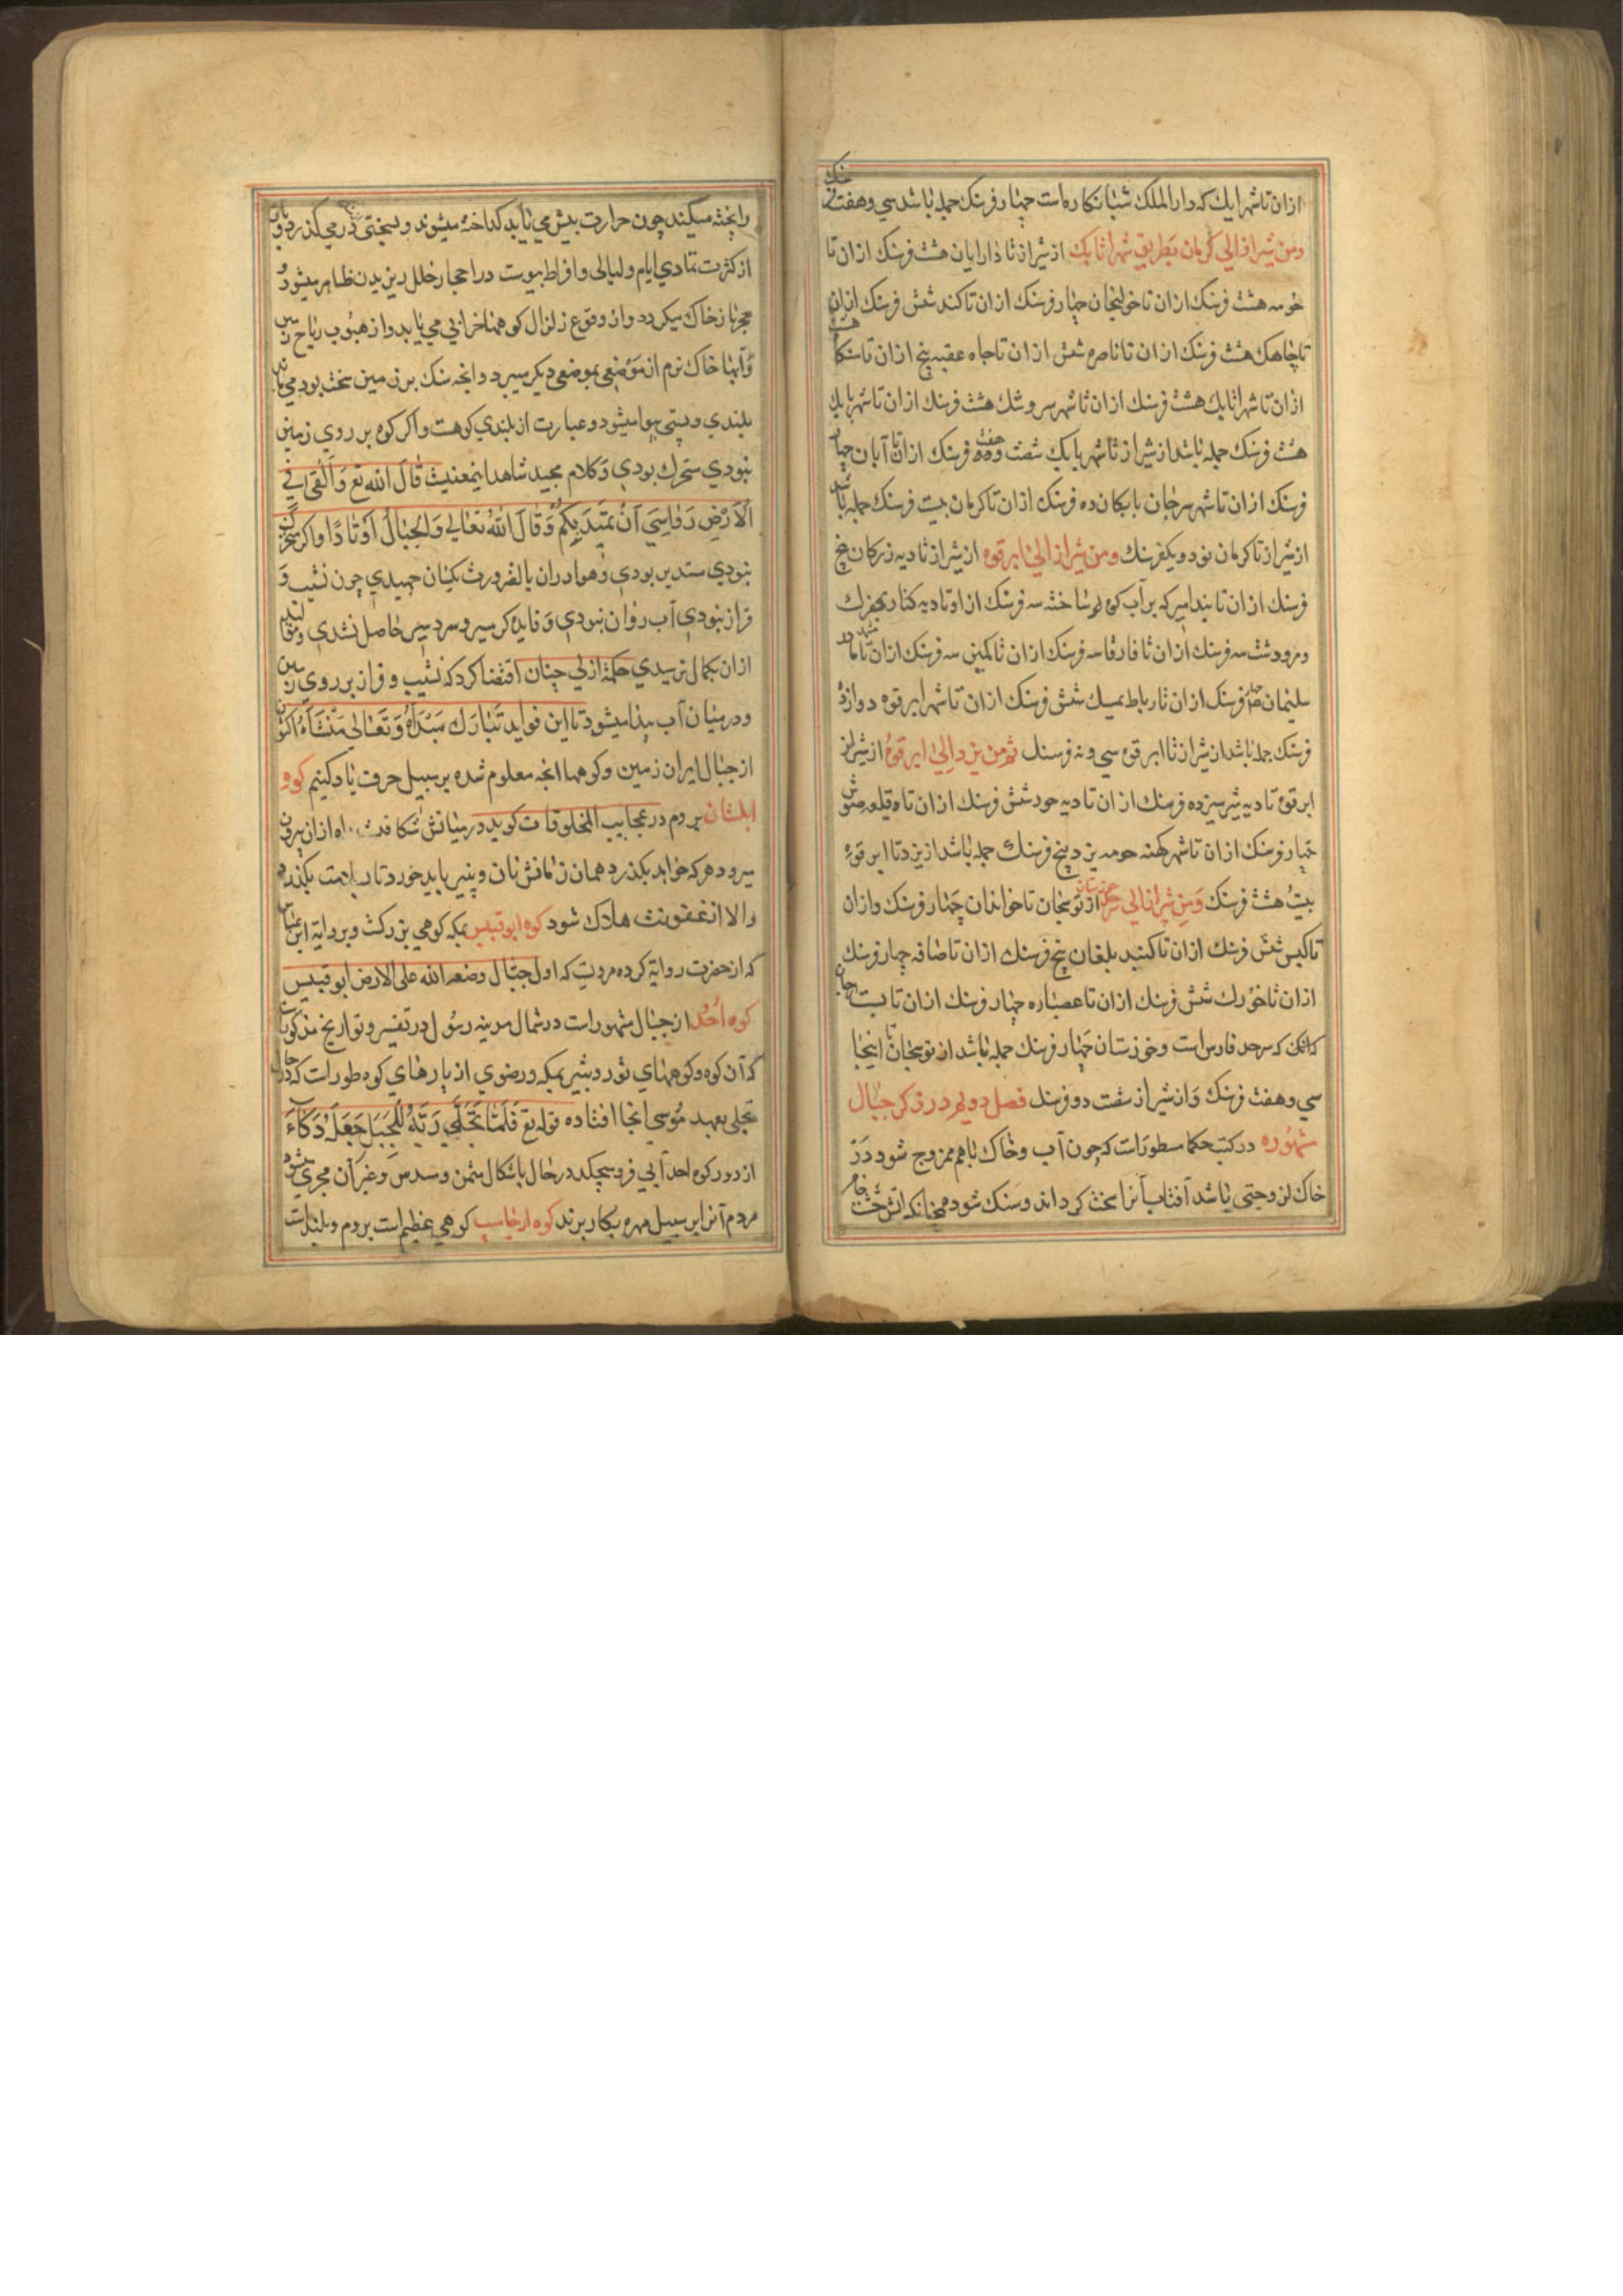 ازان تا شهر ایك که دار الملك شبانکاره است چهار فرسنك جمله باشد سی وهفت فرسنك
ومن شیراز الی کرمان بطریق شهر اتابك از شیراز تا داریان هشت فرسنك ازان تا
خرمه هشت فرسنك ازان تا خولنجان چهار فرسنك ازان تا کند شش فرسنك ازان
تا چاهك هشت فرسنك ازان تا ناصره شش ازان تا چاه عقبه پنج ازان تا
ازان تا شهر اتابك هشت فرسنك ازان تا شهر سروشك هشت فرسنك ازان تا شهر بابك
هشت فرسنك جمله باشد از شیراز تا شهر بابك شصت وهفت فرسنك ازان تا آبان چهار
فرسنك ازان تا شهر سرجان بابکان ده فرسنك ازان تا کرمان بیست فرسنك جمله باشد
از شیراز تا کرمان نود ویکفرسنك ومن شیراز الی ابرقوه از شیراز تا دیه زرکان پنج
فرسنك ازان تا بند امیر که بر آب کر ساخته سه فرسنك از او تا دیه کناره
ومرودشت سه فرسنك ازان تا فاروق سه فرسنك ازان تا کمین سه فرسنك ازان تا مشهد مادر
سلیمان چهار فرسنك ازان تا رباط شش فرسنك ازان تا شهر ابرقوه دوازده
فرسنك جمله باشد از شیراز تا ابرقوه سی ونه فرسنك ثم من یزد الی ابرقوه از شیراز
ابرقوه تا دیه شیر سیزده فرسنك ازان تا دیه جود شش فرسنك ازان تا قلعه مجوس
چهار فرسنك ازان تا شهر کهنه حومه یزد پنج فرسنك جمله باشد از یزد تا ابرقوه
بیست هشت فرسنك ومن شیراز الی از نوبنجان تا خوابدان چهار فرسنك وازان
تا کیس شش فرسنك ازان تا کنبد بلغان پنج فرسنك ازان تا صاهه چهار فرسنك
ازان تا خورك شش فرسنك ازان تا عصباره چهار فرسنك ازان تا
که سرحد فارس است وخوزستان چهار فرسنك جمله باشد از نوبنجان تا اینجا
سی وهفت فرسنك واز شیراز شصت دو فرسنك فصل دویم در ذکر جبال
مشهوره در کتب حکما مسطور است که چون آب وخاك باهم ممزوج شود در
خاك لزوجتی باشد آفتاب آنرا سخت کرداند وسنك شود همچنانکه آتش خشت خام
را پخته میکند چون حرارت بیش می یابد کداخته میشوند وبسختی در می کذرد وباز
از کثرت تمادی ایام ولیالی وافراط یبوست در احجار خلل ریزیدن ظاهر میشود و
حجر باز خاك میکردد واز وقوع زلزال کوهها خرابی می یابد واز هبوب ریاح زمین
وآبها خاك نرم از موضعی بموضعی دیکر میبرد وانچه سنك بر زمین سخت بود می ماند
بلندی وپستی پیدا میشود وعبارت از بلندی کوهست واکر کوه بر روی زمین
نبودی متحرك بودی وکلام مجید شاهد اینمعنیست قال الله تع وَأَلْقَى فِي
الْأَرْضِ رَوَاسِيَ أَنْ تَمِيدَ بِكُمْ وَقَالَ اللهُ تَعَالى وَالْجِبَالَ أَوْتَادًا واکر متحرك
نبودی مستدیر بودی وهوا دران بالضرورت یکسان جهیدی چون نشیب و
فراز نبودی آب روان نبودی وفایده کرمسیر وسردسیر حاصل نشدی
ازان بکمال نرسیدی حکمة ازلی چنان اقتضا کرد که نشیب وفراز بر روی زمین
ودر میان آب پیدا میشود تا این فواید تَبَارَكَ مَبْدَأُهُ وَتَعَالى مَنْشَأَهُ اکنون
از جبال ایران زمین وکوهها انچه معلوم شده بر سبیل حروف یاد کنیم کوه
ابلستان بروم در عجایب المخلوقات کوید در میانش شکافست راه ازان بیرون
میرود هر که خواهد بکذرد همان زمانش نان وپنیر باید خورد تا بسلامت بکذرد
والا از عفونت هلاك شود کوه ابو قبیس بمکه کوهی بزرکست وبروایة ابن عباس
که از حضرت روایة کرده مرویست که اول جبال وضعه الله علی الارض ابو قبیس
کوه اُحُد از جبال مشهور است در شمال مدینه رسول در تفسیر وتواریخ مذکور است
که آن کوه وکوههای ثور وثبیر بمکه ورضوی از پارهای کوه طور است که در حال
تجلی بعهد موسی انجا افتاده قوله تع فَلَمَّا تَجَلَّى رَبُّهُ لِلْجَبَلِ جَعَلَهُ دَكَّاءَ
از دور کوه احد آبی فرو میچکد در حال باشکال مثمن ومسدس وغیر آن میشود
مردم آنرا بر سبیل مهره بکار برند کوه ارجاسب کوهی عظیم است بروم وبلند است